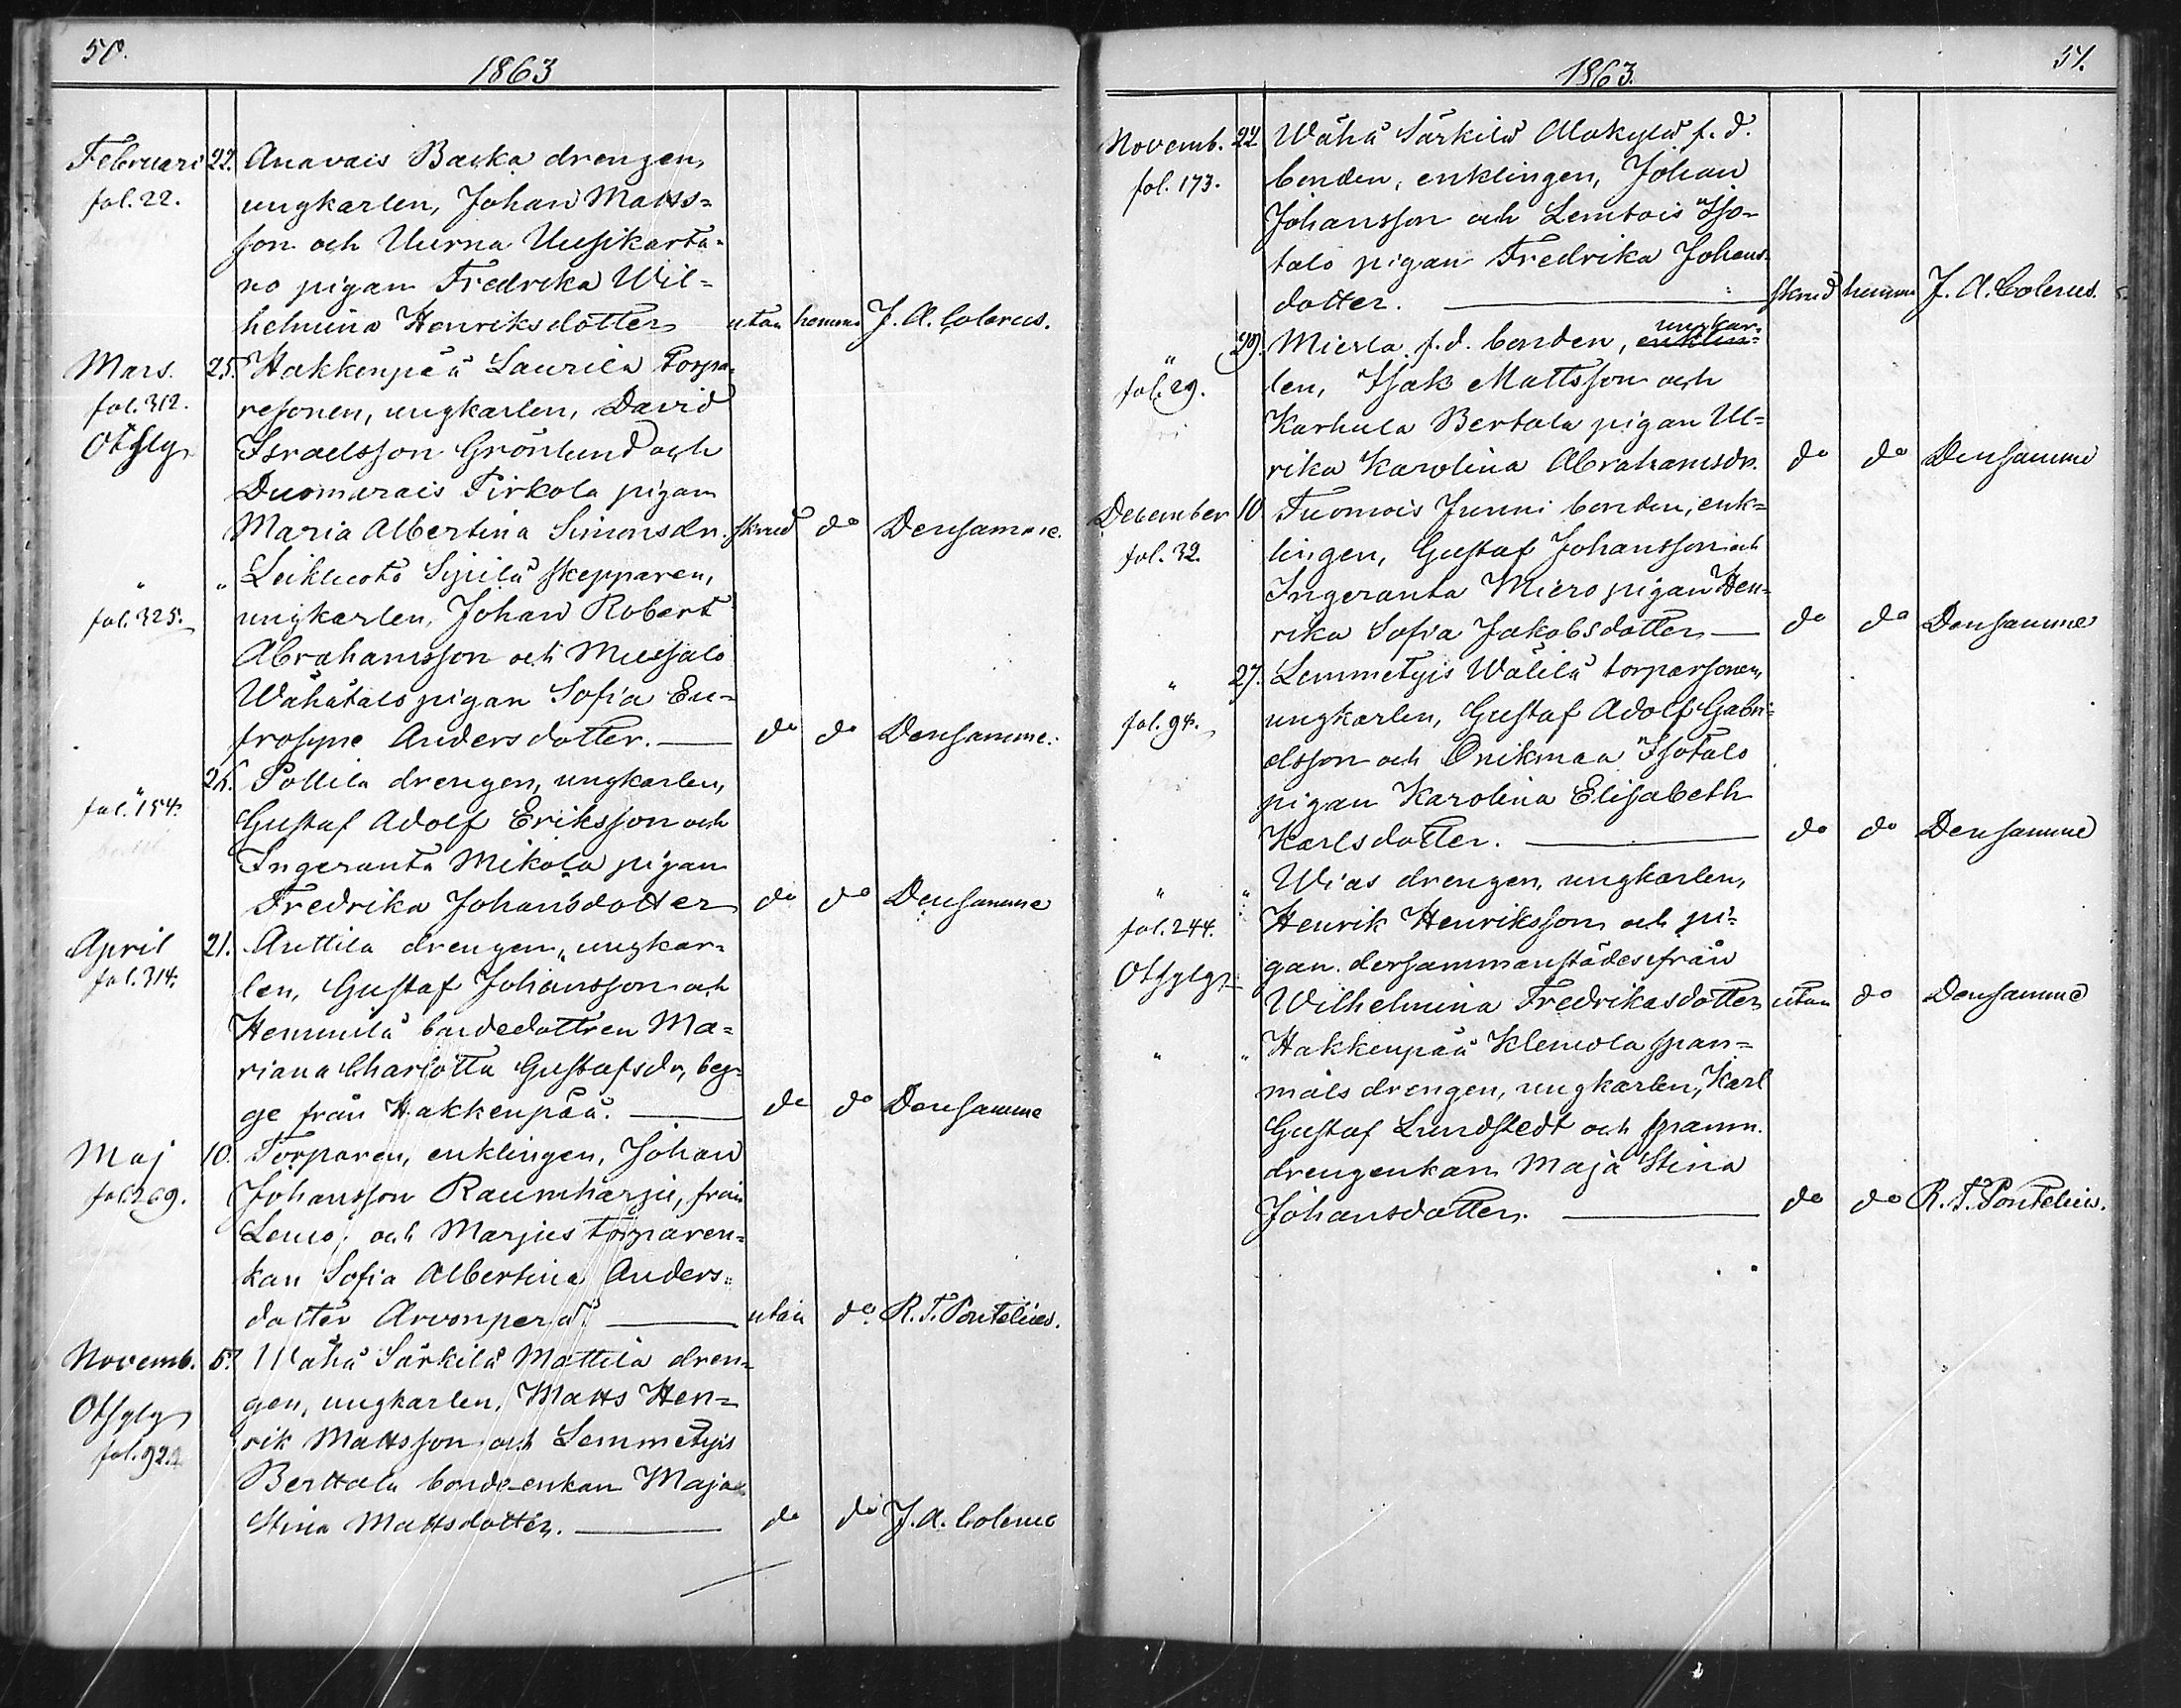 50.
1863
Februari 22. Anavais Backa drengen,
fol. 22. ungkarlen, Johan Matts=
son och Uurna Uusikarta=
no pigan Fredrika Wil=
helmina Henriksdotter utan hemma J. A. Colerus.
Mars. 25. Hakkenpää Laurila torpa=
fol. 312. resonen, ungkarlen, David
Israelsson Grönlund och
Duomarais Pirkola pigan
Maria Albertina Simonsdr. skrud do Densamme.
" " Leikluoto Sipilä skepparen,
fol. 325. ungkarlen, Johan Robert
Abrahamsson och Mussalo
Wähätalo pigan Sofia Eu=
frosyne Andersdotter. — do do Densamme.
" 26. Pollila drengen, ungkarlen,
fol. 154. Gustaf Adolf Eriksson och
Ingeranta Mikola pigan
Fredrika Johansdotter do do Densamme
April 21. Anttila drengen, ungkar=
fol. 314. len, Gustaf Johansson och
Hemmilä bondedottren Ma=
riana Charlotta Gustafsdr, beg=
ge från Hakkenpää. — do do Densamme
Maj 10. Torparen, enklingen, Johan
fol. 269. Johansson Raumharju, från
Lemo, och Marjus torparen=
kan Sofia Albertina Anders=
dotter Arvonperä. — utan do R. T. Pontelius.
Novemb. 5. Wähä Särkilä Mattila dren=
gen, ungkarlen, Matts Hen=
fol. 92. rik Mattsson och Lemmetyis
Berttala bonde-enkan Maja
Stina Mattsdotter. — do do J. A. Colerus
51.
1863.
Novemb. 22. Wähä Särkilä Alakylä f. d.
fol. 173. bonden, enklingen, Johan
Johansson och Lemtois Iso=
talo pigan Fredrika Johans=
dotter. — skrud hemma J. A. Colerus.
ungkar=
" 29. Mierla f. d. bonden, enklin=
fol. 29. len, Isak Mattsson och
Karhula Bertala pigan Ul=
rika Karolina Abrahamsdr. do do Densamme
December 10. Tuomois Junni bonden, enk=
fol. 32. lingen, Gustaf Johansson och
Ingeranta Miero pigan Hen=
rika Sofia Jakobsdotter — do do Densamme
" 27. Lemmetyis Wälilä torparsonen,
fol. 94. ungkarlen, Gustaf Adolf Gabri=
elsson och Onikmaa Isotalo
pigan Karolina Elisabeth
Karlsdotter. — do do Densamme
" " Wias drengen, ungkarlen,
fol. 244. Henrik Henriksson och pi=
gan dersammanstädesifrån
Wilhelmina Fredrikasdotter utan do Densamme
" " Hakkenpää Klemola span=
måls drengen, ungkarlen, Karl
Gustaf Lundstedt och spanm.
drengenkan Maja Stina
Johansdotter. — do do R. T. Pontelius.